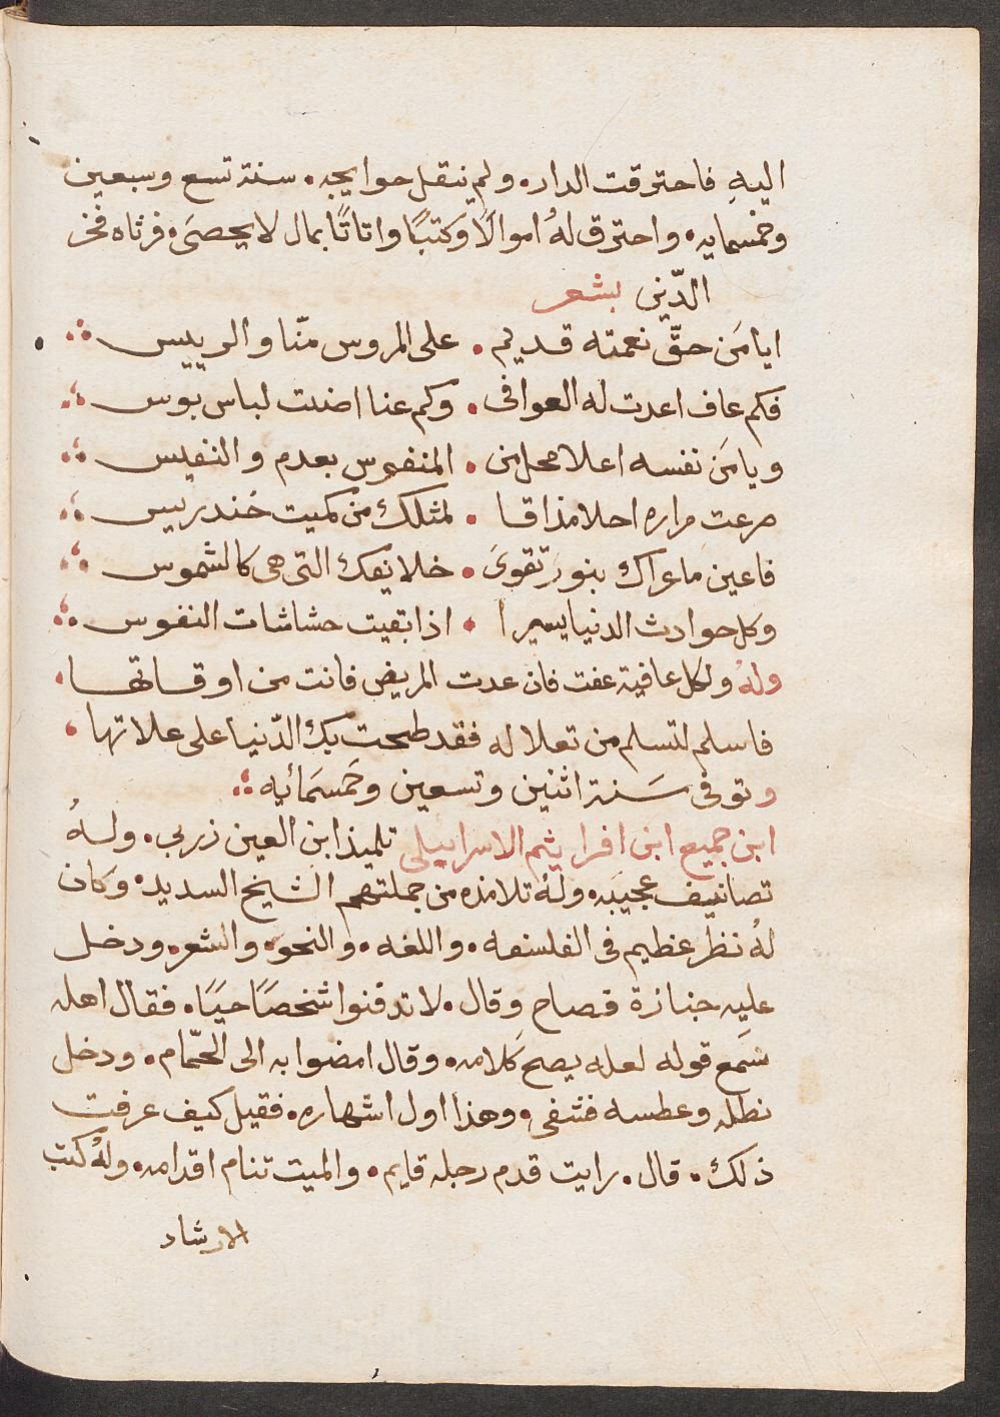 اليهِ فاحترقت الدار. ولم ينقل حوايجه. سنة تسع وسبعين
وخمسمايه. واحترق لهُ اموالًا وكتبًا واتاتًا بمال لا يحصىَ. فرثاه فخر
الدّين بشعر
ايا مَن حقّ نعمته قديم. على المروس منّا والرييس
فكم عاف اعدت له العوافى. وكم عنا اضنت لباس بوس
ويا مَن نفسه اعلا محل من. المنفوس بعدم والنفيس
جرعت مراره احلا مذاقا. لمثلك من كميت خندريس
فاعين ما عراك بنور تقوىَ. خلايقك التى هى كالشموس
وكل حوادث الدنيا يسيرا. اذا بقيت حشاشات النفوس
ولهُ ولكل عافية عفت فان عدت المريض فانت من اوقاتها.
فاسلم لتسلم من تعلا له فقد طمحت بك الدّنيا على علاتها
وتوفى سَنة اثنين وتسعين وخَمسَمائيه
ابن جميع ابن افرايثم الاسراييلى تلميذ ابن العين زربي. ولهُ
تصانيف عجيَبه. ولهُ تلامذه من جملتهم الشيخ السديد. وكان
لهُ نظر عظيم فى الفلسفه. واللغه. والنحو. والشعر. ودخل
عليه جنازة فصاح وقال. لا تدفنوا شخصًا حيًا. فقال اهله
نسَمع قوله لعله يصح كَلامه. وقال امضوا به الى الحمّام. ودخل
نطله وعطسه فشفى. وهذا اول اشهاره. فقيل كيف عرفت
ذلك. قال. رايت قدم رجله قايم. والميت تنام اقدامه. ولهُ كتب
الارشاد